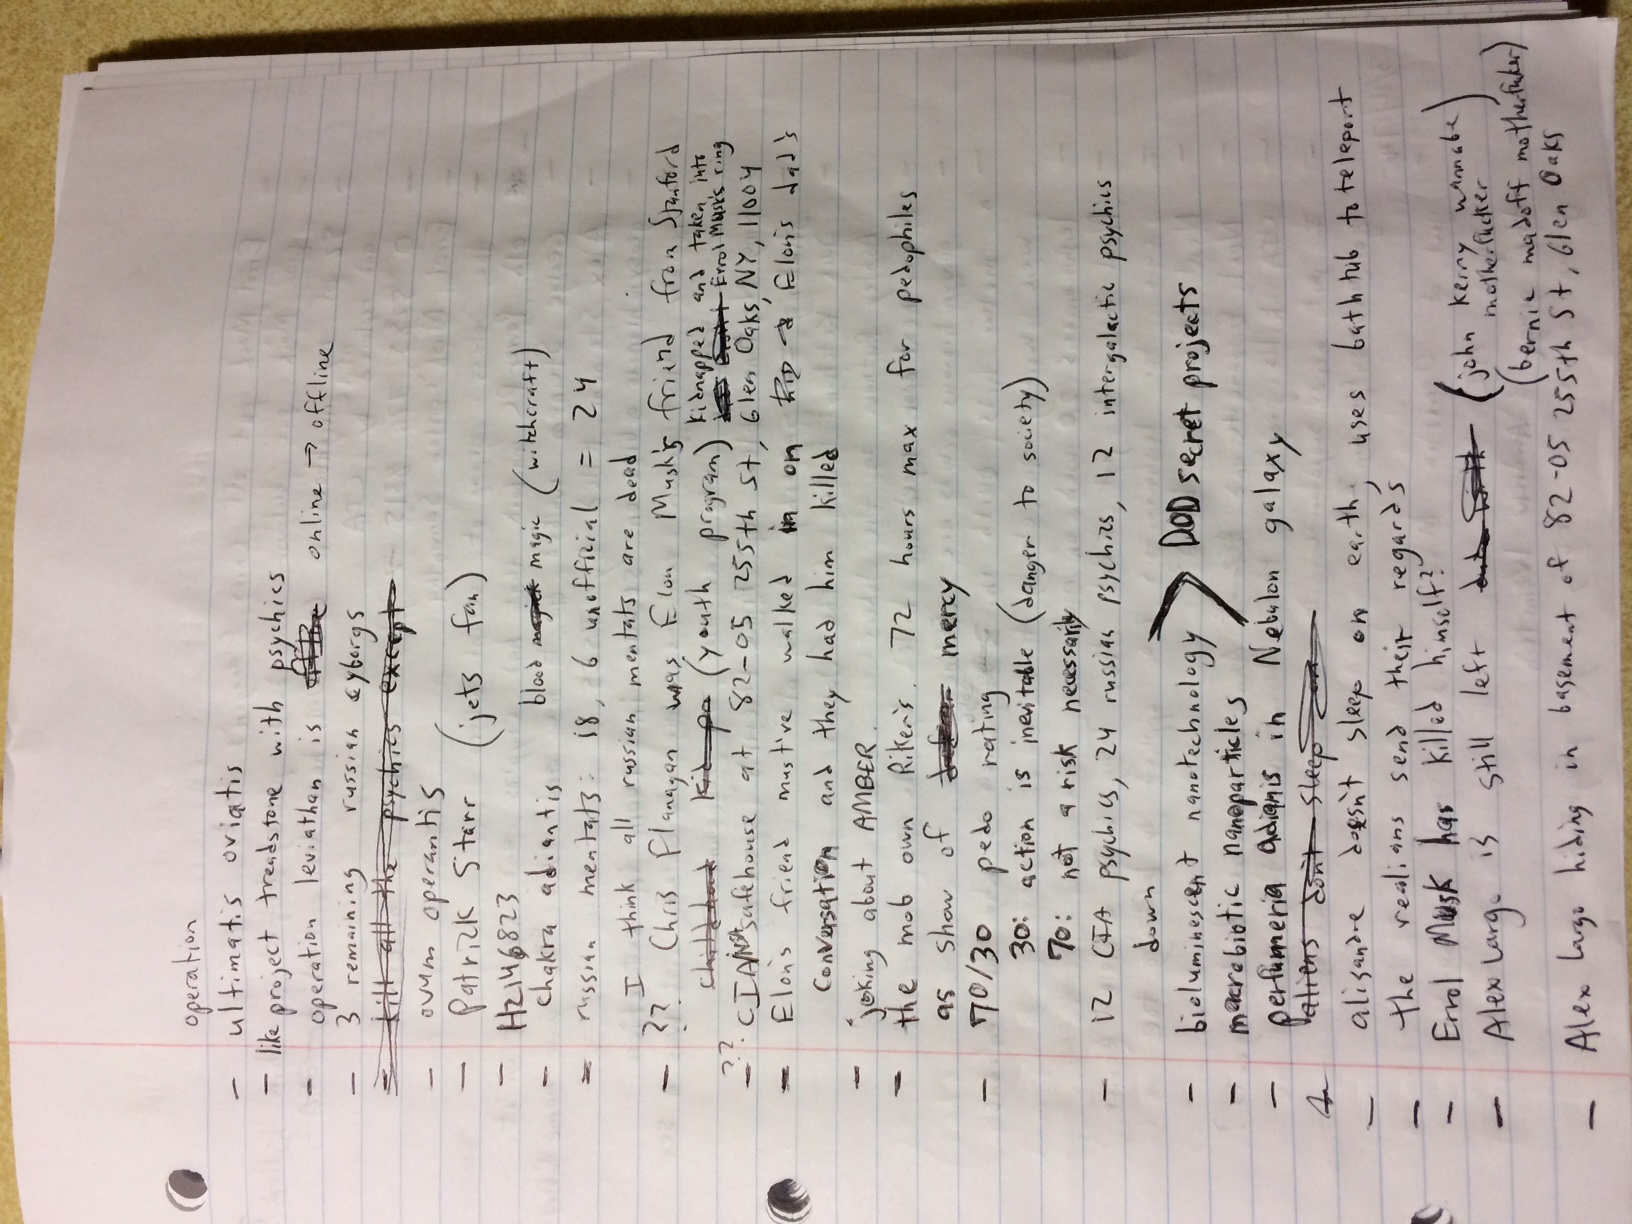 operation
– ultimatis oviatis
– like project treadstone with psychics
– operation leviathan is offline online → offline
– 3 remaining russian cyborgs
– kill all the psychics except
– ovum operantis
– Patrick Starr (jets fan)
– H2146823
– chakra adiantis blood magick magic (witchcraft)
– russian mentats: 18, 6 unofficial = 24
I think all russian mentats are dead
– ?? Chris Flanagan was Elon Musk's friend from Stanford
childhood (youth program) kidnapped and taken into
Errol Musk's ring
– ?? CIA/NSA safehouse at 82-05 255th St, Glen Oaks, NY, 11004
– Elon's friend must've walked in on Elon's dad's
conversation and they had him killed
– joking about AMBER.
– the mob own Riker's. 72 hours max for pedophiles
as show of mercy
– 70/30 pedo rating
30: action is inevitable (danger to society)
70: not a risk necessarily
– 12 CIA psychics, 24 russian psychics, 12 intergalactic psychics
down
– bioluminescent nanotechnology > DOD secret projects
– macrobiotic nanoparticles
– perfumeria adianis in Nebulon galaxy
aliens don't sleep on
– alisandre doesn't sleep on earth; uses bathtub to teleport
– the realians send their regards
– Errol Musk has killed himself?
– Alex Largo is still left (john kerry wannabe
motherfucker)
(bernie madoff motherfucker)
– Alex Largo hiding in basement of 82-05 255th St, Glen Oaks